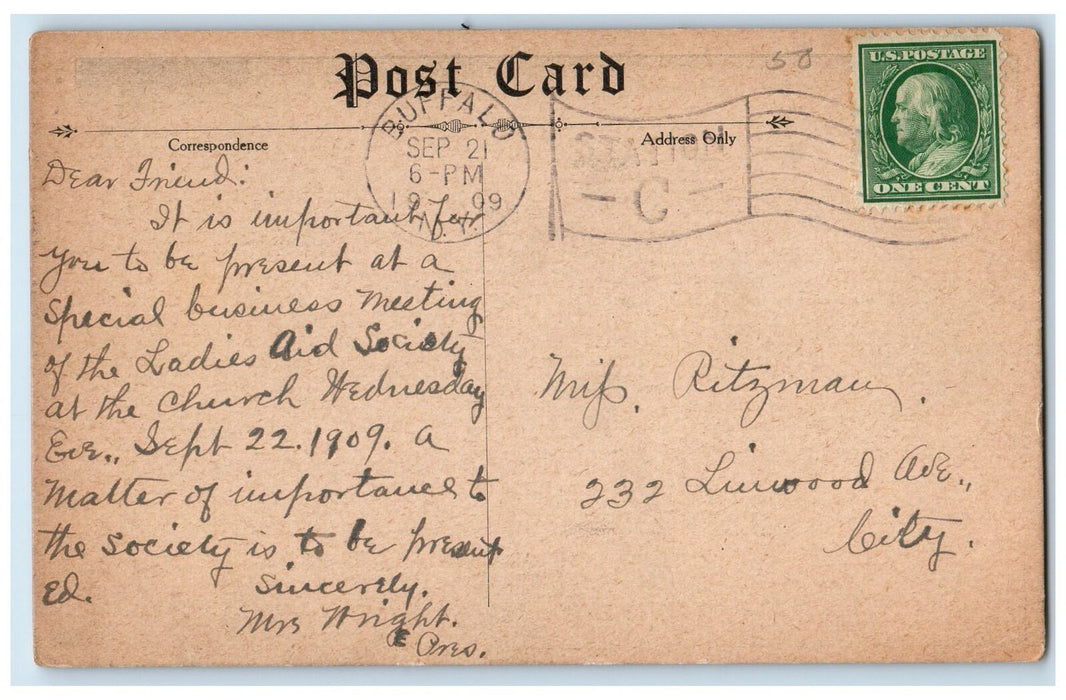 Post Card
Correspondence
Address Only
50
U.S. POSTAGE
ONE CENT
BUFFALO
SEP 21
6-PM
1909
N.Y.
STATION
- C -
Dear Friend:
It is important for
you to be present at a
special business meeting
of the Ladies Aid Society
at the church Wednesday
Eve., Sept 22. 1909. A
matter of importance to
the society is to be present
ed.
Sincerely,
Mrs Wright.
Pres.
Miss. Ritzman.
232 Linwood Ave.,
City.